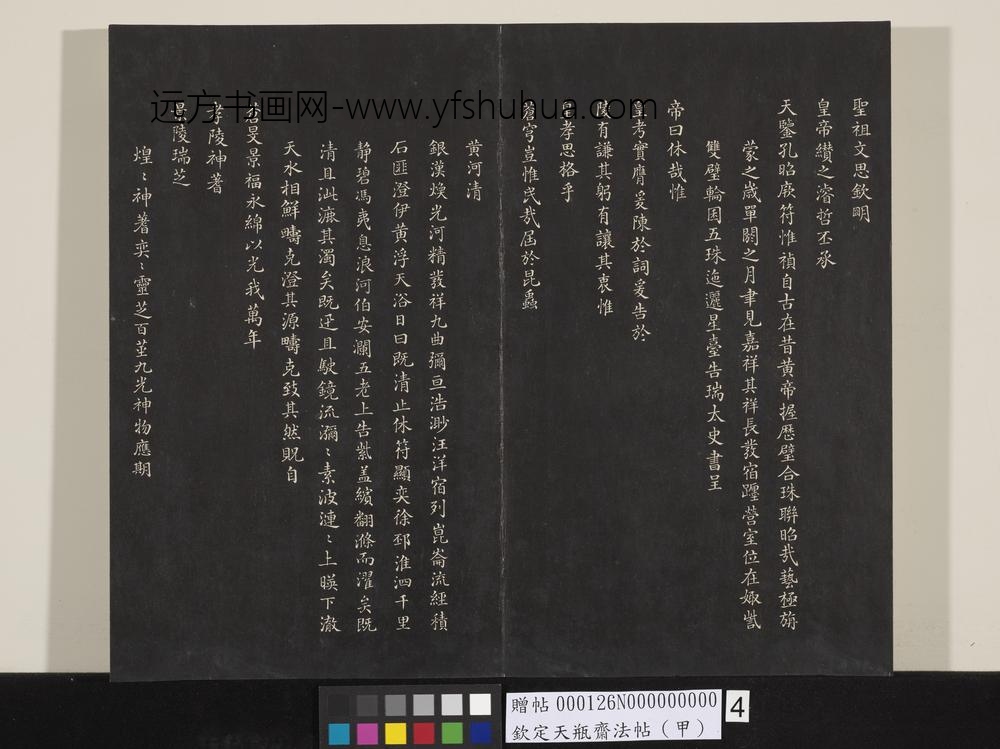 聖祖文思欽明
皇帝纘之濬哲丕承
天鑒孔昭庶符惟禎自古在昔黃帝握歷璧合珠聯昭哉藝極旃
蒙之歲單閼之月聿見嘉祥其祥長發宿躔營室位在娵訾
雙璧輪囷五珠迤邐星臺告瑞太史書呈
帝曰休哉惟
皇考實膺爰陳於詞爰告於
陵有謙其躬有讓其衷惟
皇孝思格乎
蒼穹豈惟民哉屆於昆蟲
黃河清
銀漢煥光河精發祥九曲彌亘浩渺汪洋宿列崑崙流經積
石匪澄伊黃浮天浴日曰既清止休符顯奕徐邳淮泗千里
靜碧馮夷息浪河伯安瀾五老上告紫蓋繽翻滌而濯矣既
清且泚漉其濁矣既迅且駛鏡流瀰〻素波漣〻上暎下澈
天水相鮮疇克澄其源疇克致其然貺自
蒼旻景福永綿以光我萬年
孝陵神蓍
景陵瑞芝
煌〻神蓍奕〻靈芝百莖九光神物應期
远方书画网-www.yfshuhua.com
贈帖 000126N000000000
欽定天瓶齋法帖（甲）
4